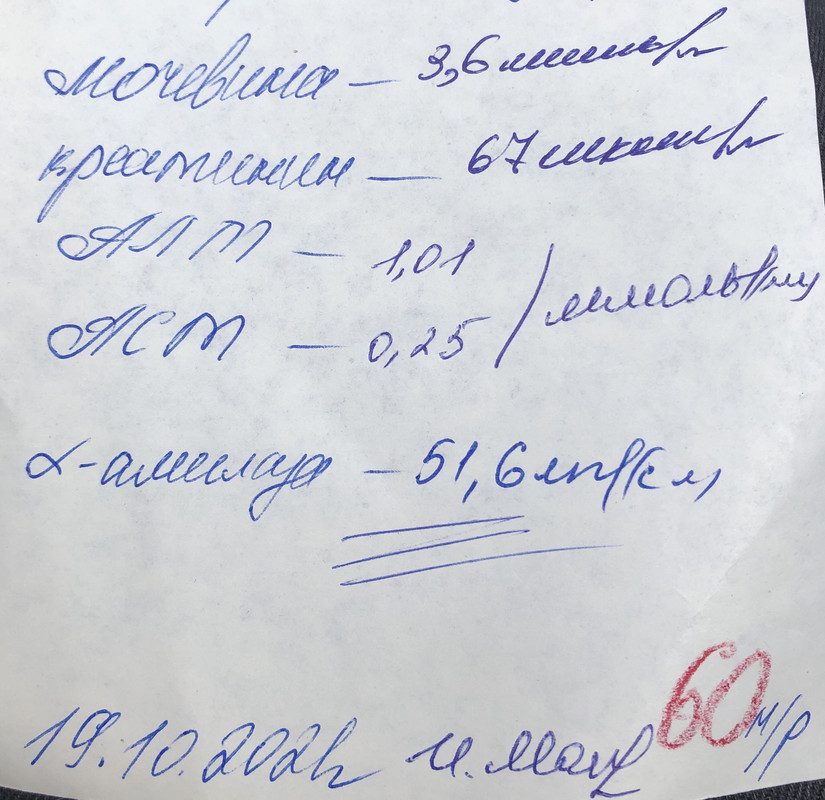 мочевина — 3,6 ммоль/л
креатинин — 67 мкмоль/л
АЛТ — 1,01
АСТ — 0,25 / ммоль/
α-амилаза — 51,6
19.10.2021г 60 м/р